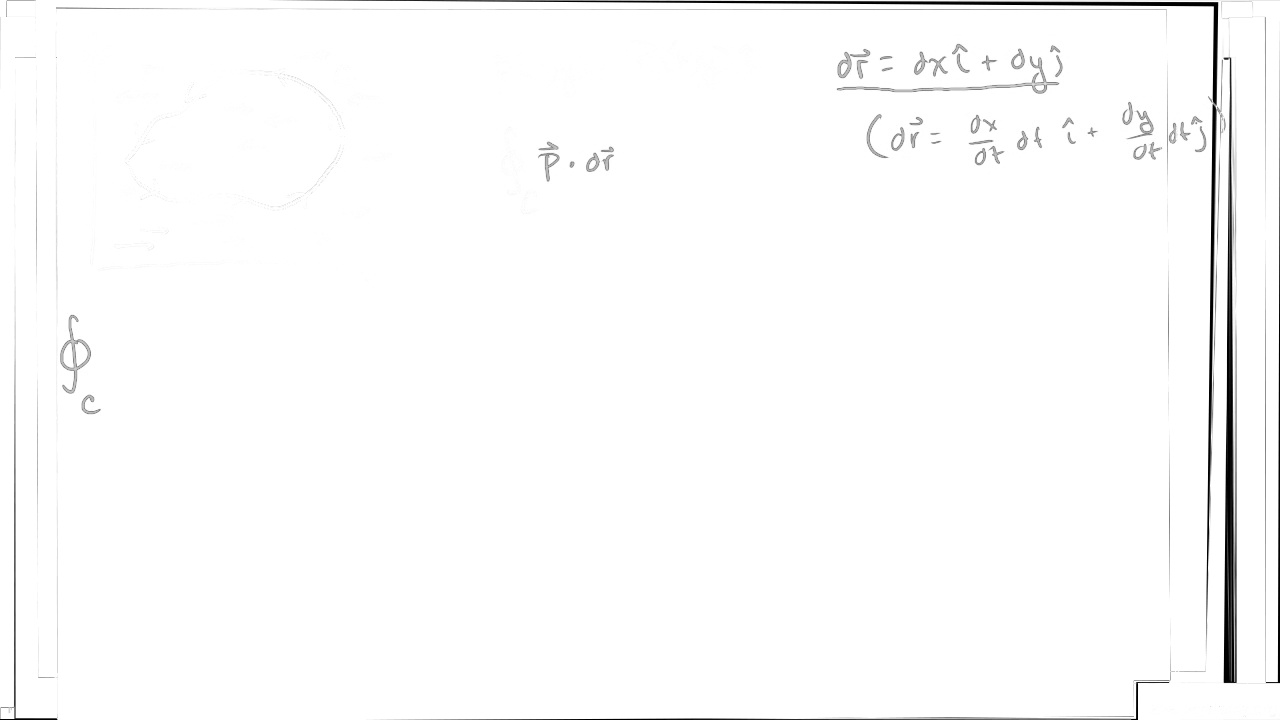 d\vec{r} = dx\hat{i} + dy\hat{j}
(d\vec{r} = \frac{dx}{dt} dt \hat{i} + \frac{dy}{dt} dt \hat{j})
\vec{p} \cdot d\vec{r}
\oint_C